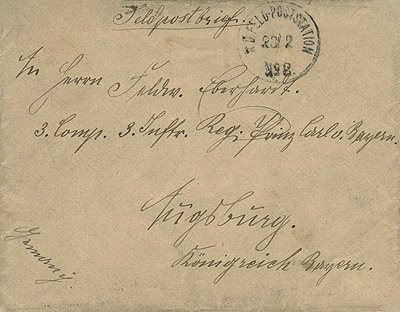 Feldpostbrief.
K.D. FELD-POSTSTATION
23/2
No 2.
An Herrn Feldw. Eberhardt.
3. Comp. 3. Inftr. Reg. Prinz Carl v. Bayern.
Augsburg.
Königreich Bayern.
Germany